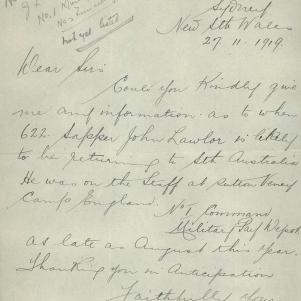 No. 1 
not yet listed
Sydney
New Sth Wales
27. 11. 1919.
Dear Sir
Could you Kindly give
me any information as to when
622. Sapper John Lawlor is likely
to be returning to Sth Australia
He was on the Staff at Sutton Veney
Camp England. No 1 Command
Military Pay Depot.
as late as August this year.
Thanking you in Anticipation
Faithfully